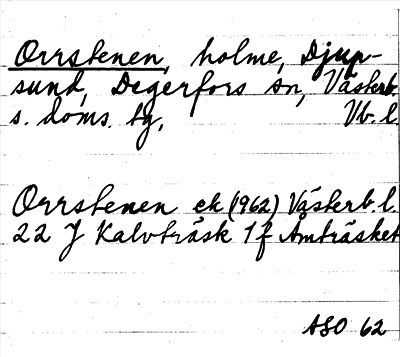 Orrstenen, holme, Djup-
sund, Degerfors sn, Västerb.
s. doms. tg, Vb. l.
Orrstenen ek (1962) Västerb. l.
22 J Kalvträsk 1f Amträsket
ASO 62